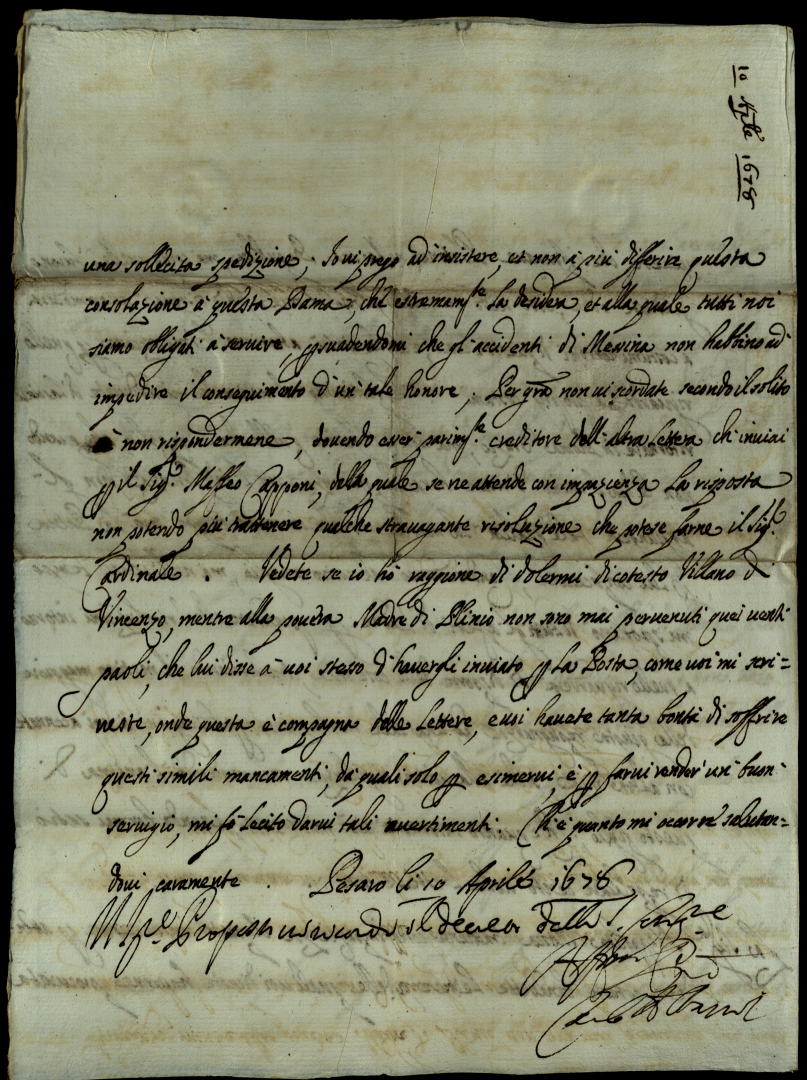 10 Aple 1678
una sollecita spedizione; Io vi prego ad' insistere, et non à più differire questa
consolazione à questa Dama, che estremamte. la desidera, et alla quale tutti noi
siamo obligati à servire, psuadendomi che gl'accidenti di Messina non habbino ad'
impedire il conseguimento d'un' tale honore; Per gra non vi scordate secondo il solito
à non rispondermene, dovendo esser' parimte. creditore dell'altra lettera ch'inviai
p il Sigr. Maffeo Capponi, della quale se ne attende con impazienza la risposta
non potendo più trattenere qualche stravagante risoluzione che potesse farne il Sigr.
Cardinale. Vedete se io hò raggione di dolermi di cotesto Villano di
Vincenzo, mentre alla povera Madre di Plinio non sono mai pervenuti quei venti
paoli, che lui disse à voi stesso d'havergli inviato p la Posta, come voi mi scri=
veste, onde questa è compagna delle lettere, e voi havete tanta bontà di soffrire
questi simili mancamenti, da quali solo p esimervi, è p farvi render' un' buon'
servigio, mi fò lecito darvi tali avertimenti. Ch'è quanto mi occorre salutan=
dovi caramente. Pesaro li 10 Aprile 1678